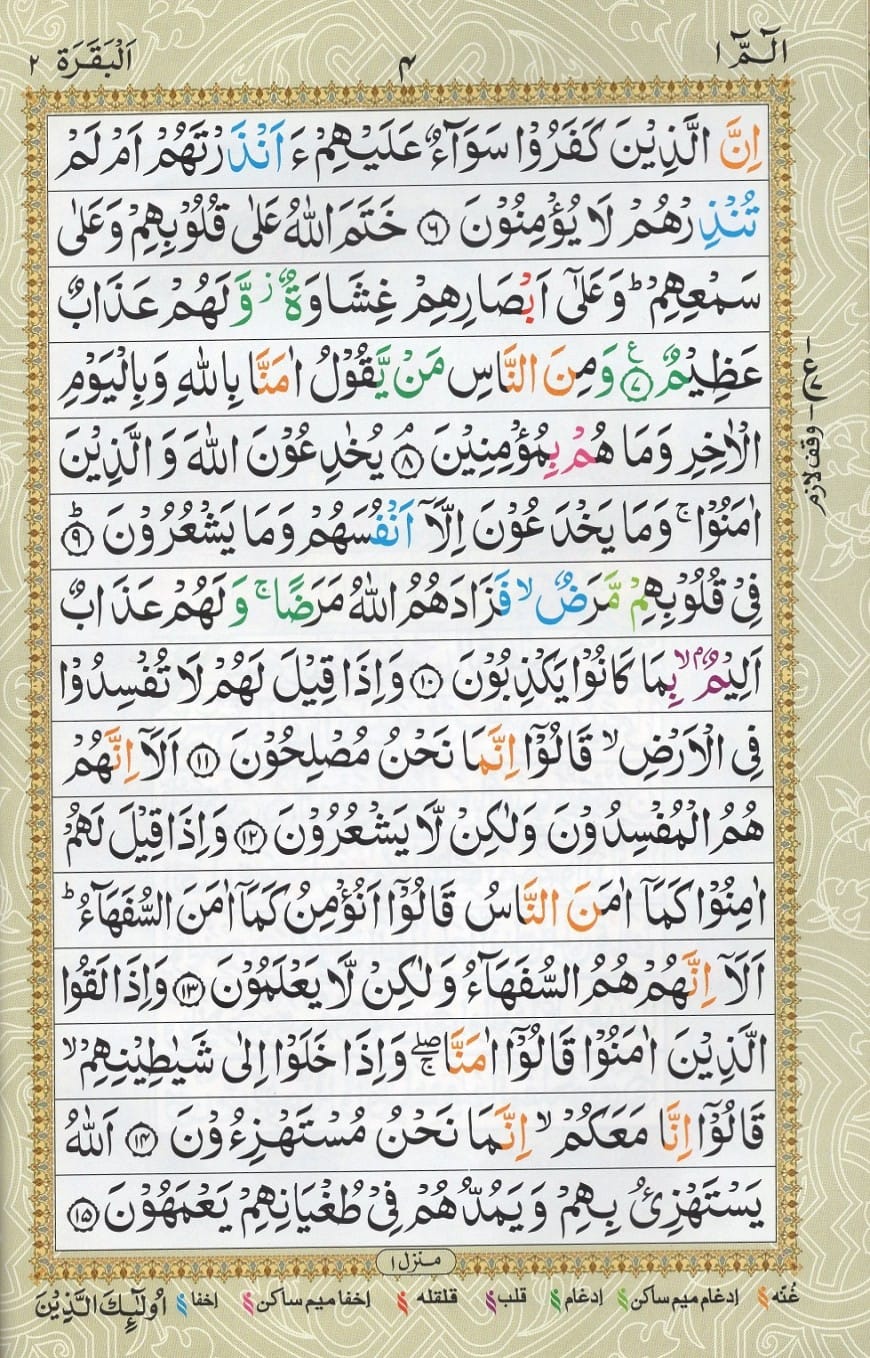 الٓمّٓ ١ ٤ اَلْبَقَرَة ٢
اِنَّ الَّذِيْنَ كَفَرُوْا سَوَآءٌ عَلَيْهِمْ ءَاَنْذَرْتَهُمْ اَمْ لَمْ
تُنْذِرْهُمْ لَا يُؤْمِنُوْنَ ۝٦ خَتَمَ اللّٰهُ عَلٰى قُلُوْبِهِمْ وَعَلٰى
سَمْعِهِمْ ؕ وَعَلٰٓى اَبْصَارِهِمْ غِشَاوَةٌ ز وَّلَهُمْ عَذَابٌ
عَظِيْمٌ ۝٧ ع وَمِنَ النَّاسِ مَنْ يَّقُوْلُ اٰمَنَّا بِاللّٰهِ وَبِالْيَوْمِ
الْاٰخِرِ وَمَا هُمْ بِمُؤْمِنِيْنَ ۝٨ۘ يُخٰدِعُوْنَ اللّٰهَ وَالَّذِيْنَ
اٰمَنُوْا ۚ وَمَا يَخْدَعُوْنَ اِلَّآ اَنْفُسَهُمْ وَمَا يَشْعُرُوْنَ ۝٩ؕ
فِيْ قُلُوْبِهِمْ مَّرَضٌ ۙ فَزَادَهُمُ اللّٰهُ مَرَضًا ۚ وَلَهُمْ عَذَابٌ
اَلِيْمٌۢ ۙ بِمَا كَانُوْا يَكْذِبُوْنَ ۝١٠ وَاِذَا قِيْلَ لَهُمْ لَا تُفْسِدُوْا
فِي الْاَرْضِ ۙ قَالُوْٓا اِنَّمَا نَحْنُ مُصْلِحُوْنَ ۝١١ اَلَآ اِنَّهُمْ
هُمُ الْمُفْسِدُوْنَ وَلٰكِنْ لَّا يَشْعُرُوْنَ ۝١٢ وَاِذَا قِيْلَ لَهُمْ
اٰمِنُوْا كَمَآ اٰمَنَ النَّاسُ قَالُوْٓا اَنُؤْمِنُ كَمَآ اٰمَنَ السُّفَهَآءُ ؕ
اَلَآ اِنَّهُمْ هُمُ السُّفَهَآءُ وَلٰكِنْ لَّا يَعْلَمُوْنَ ۝١٣ وَاِذَا لَقُوا
الَّذِيْنَ اٰمَنُوْا قَالُوْٓا اٰمَنَّا ۖۚ وَاِذَا خَلَوْا اِلٰى شَيٰطِيْنِهِمْ ۙ
قَالُوْٓا اِنَّا مَعَكُمْ ۙ اِنَّمَا نَحْنُ مُسْتَهْزِءُوْنَ ۝١٤ اَللّٰهُ
يَسْتَهْزِئُ بِهِمْ وَيَمُدُّهُمْ فِيْ طُغْيَانِهِمْ يَعْمَهُوْنَ ۝١٥
وقف لازم
منزل ١
غُنّه ادغام ميم ساكن ادغام قلب قلقله اخفا ميم ساكن اخفا اُولٰٓئِكَ الَّذِيْنَ